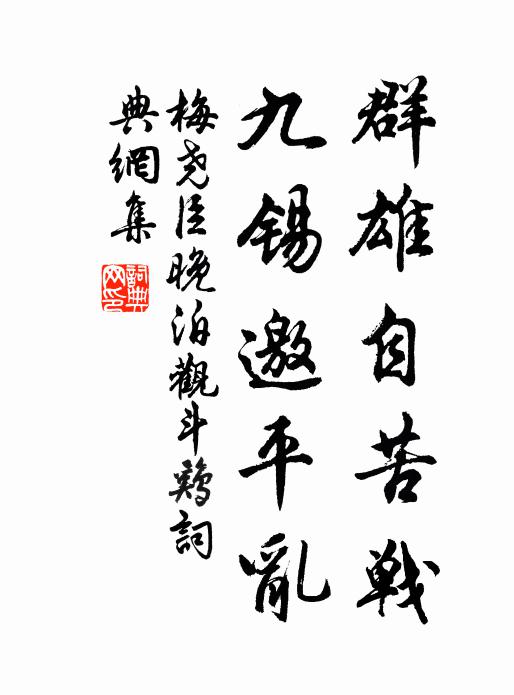 群雄自苦戦
九錫邀平亂
梅尧臣晚泊觀斗鷄詞
典網集
詞典网印